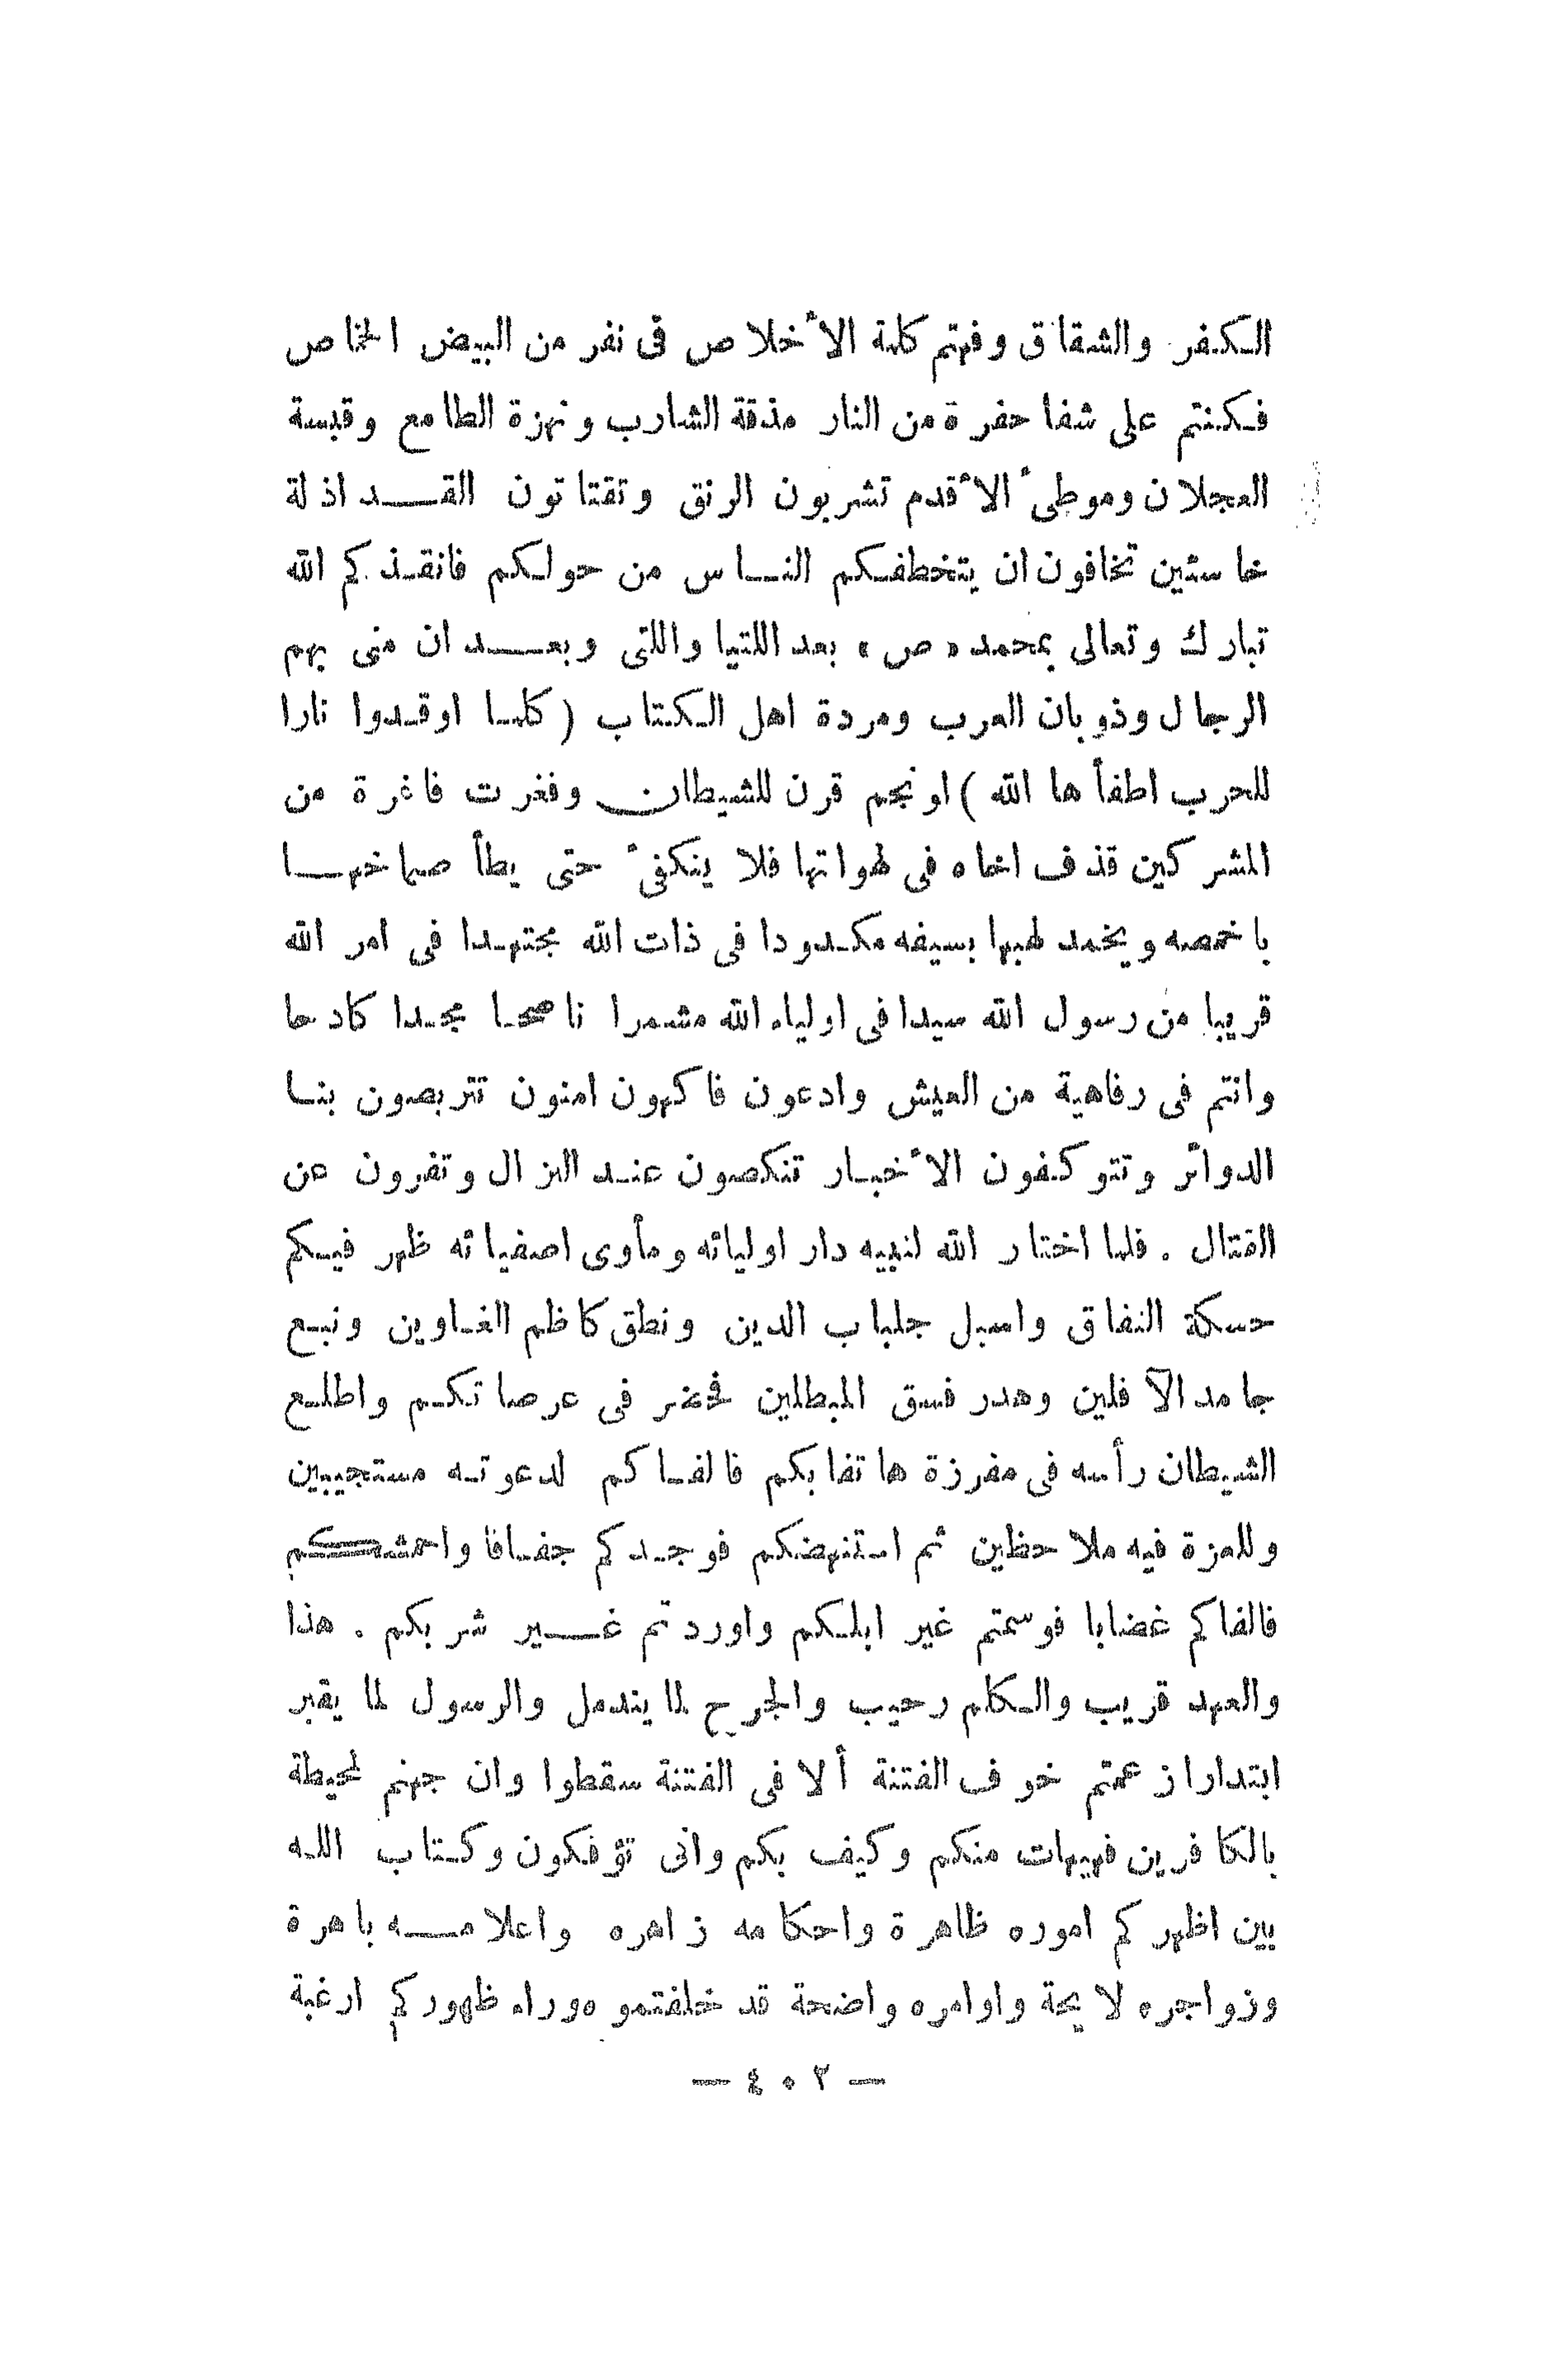 الكفر والشقاق وفهتم كلمة الأخلاص في نفر من البيض الخماص
فكنتم على شفا حفرة من النار مذقة الشارب ونهزة الطامع وقبسة
العجلان وموطئ الأقدم تشربون الرنق وتقتاتون القد اذلة
خاسئين تخافون ان يتخطفكم الناس من حولكم فانقذكم الله
تبارك وتعالى بمحمد « ص » بعد اللتيا واللتى وبعد ان منى بهم
الرجال وذوبان العرب ومردة اهل الكتاب ( كلما اوقدوا نارا
للحرب اطفأها الله ) او نجم قرن للشيطان وفغرت فاغرة من
المشركين قذف اخاه في لهواتها فلا ينكفئ حتى يطأ صماخها
باخمصه ويخمد لهبها بسيفه مكدودا في ذات الله مجتهدا في امر الله
قريبا من رسول الله سيدا في اولياء الله مشمرا ناصحا مجدا كادحا
وانتم في رفاهية من العيش وادعون فاكهون امنون تتربصون بنا
الدوائر وتتوكفون الأخبار تنكصون عند النزال وتفرون عن
القتال . فلما اختار الله لنبيه دار اوليائه ومأوى اصفيائه ظهر فيكم
حسكة النفاق واسبل جلباب الدين ونطق كاظم الغاوين ونبع
جامد الآفلين وهدر فسق المبطلين فخر في عرصاتكم واطلع
الشيطان رأسه في مفرزة هاتفا بكم فالفاكم لدعوته مستجيبين
وللعزة فيه ملاحظين ثم استنهضكم فوجدكم جفافا واحمشكم
فالفاكم غضابا فوسمتم غير ابلكم واوردتم غير شربكم . هذا
والعهد قريب والكلم رحيب والجرح لما يندمل والرسول لما يقبر
ابتدارا زعمتم خوف الفتنة ألا في الفتنة سقطوا وان جهنم لمحيطة
بالكافرين فهيهات منكم وكيف بكم وانى تؤفكون وكتاب الله
بين اظهركم اموره ظاهرة واحكامه زاهره واعلامه باهرة
وزواجره لايحة واوامره واضحة قد خلفتموه وراء ظهوركم ارغبة
— ٤٠٢ —